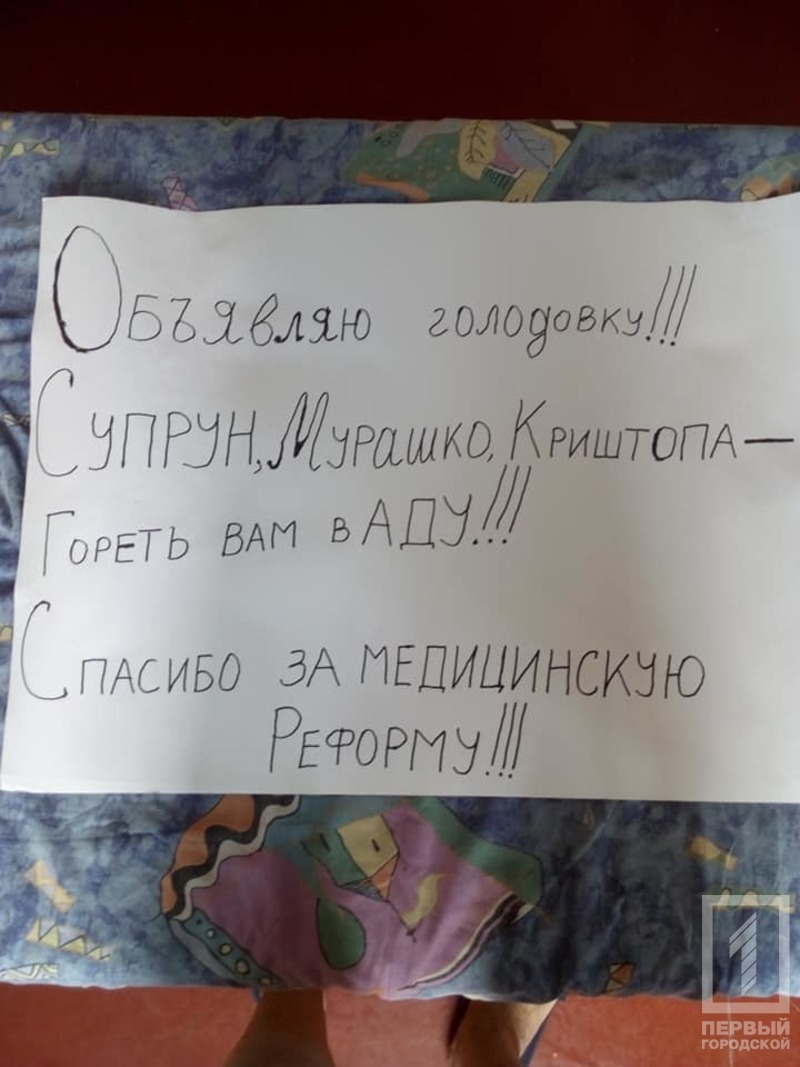 Объявляю голодовку!!!
Супрун, Мурашко, Криштопа —
Гореть вам в АДУ!!!
Спасибо за медицинскую
Реформу!!!
1
ПЕРВЫЙ
ГОРОДСКОЙ